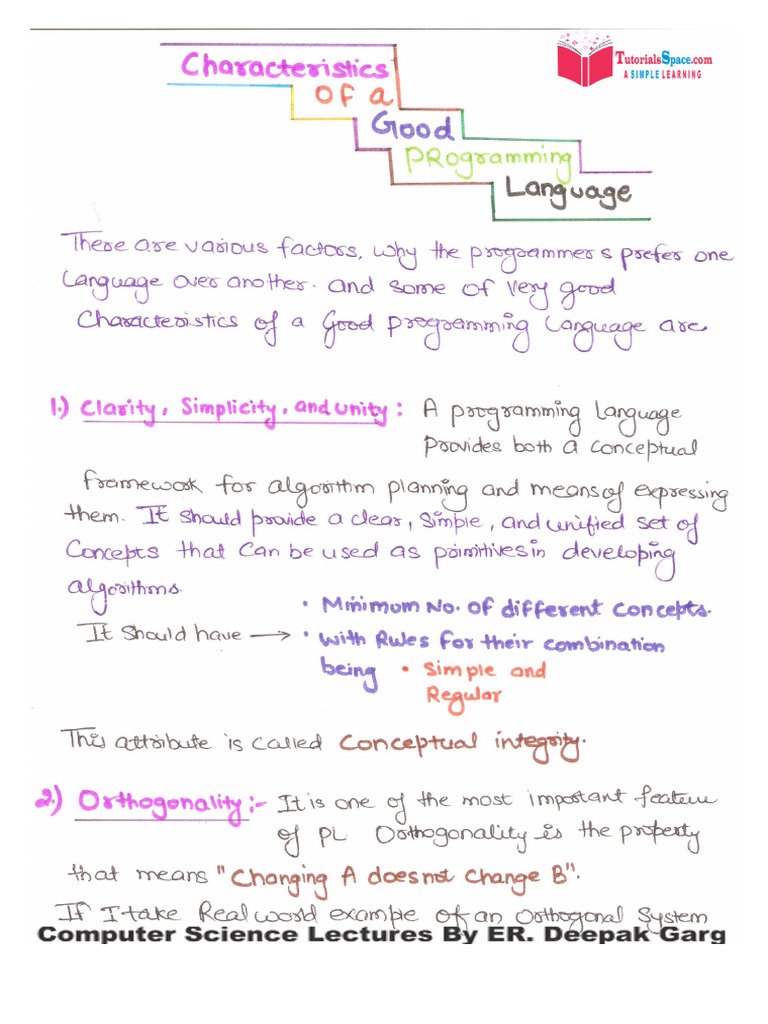 Characteristics
TutorialsSpace.com
A SIMPLE LEARNING
of a
Good
PROgramming
Language
There are various factors, why the programmers prefer one
Language over another. and some of very good
Characteristics of a Good programming Language are
1.) Clarity, Simplicity, and unity : A programming Language
Provides both a conceptual
framework for algorithm planning and means of expressing
them. It should provide a clear, simple, and unified set of
Concepts that can be used as primitives in developing
algorithms.
• Minimum No. of different concepts.
It should have → • with Rules for their combination
being • Simple and
Regular
This attribute is called Conceptual integrity.
2.) Orthogonality :- It is one of the most important feature
of PL Orthogonality is the property
that means "Changing A does not change B".
If I take Real world example of an Orthogonal System
Computer Science Lectures By ER. Deepak Garg